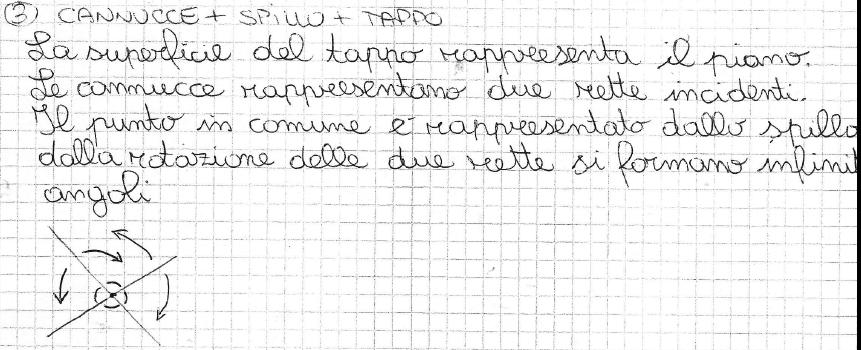 ③ CANNUCCE + SPILLO + TAPPO
La superficie del tappo rappresenta il piano.
Le cannucce rappresentano due rette incidenti.
Il punto in comune è rappresentato dallo spillo
dalla rotazione delle due rette si formano infinit
angoli